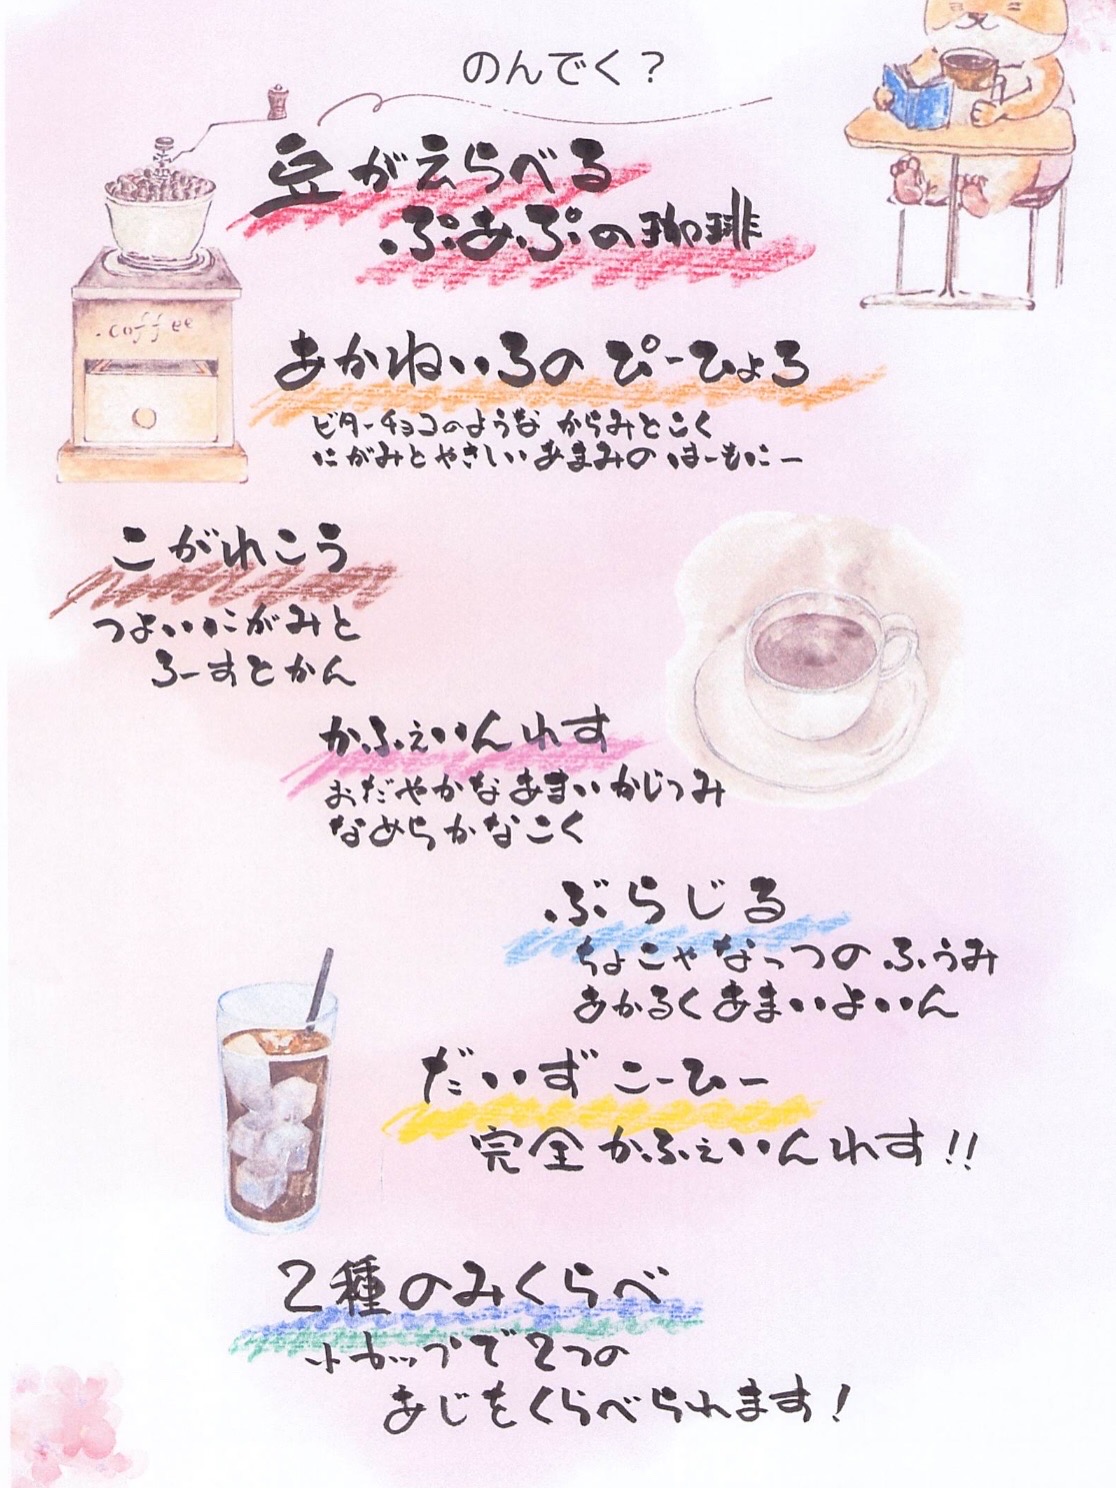 のんでく？
豆がえらべる
ぷあぷの珈琲
coffee
あかねいろの ぴーひょろ
ビターチョコのような からみとこく
にがみとやさしいあまみの はーもにー
こがれこう
つよいにがみと
ろーすとかん
かふぇいんれす
おだやかなあまいかじつみ
なめらかなこく
ぶらじる
ちょこやなっつのふうみ
あかるくあまいよいん
だいずこーひー
完全かふぇいんれす!!
2種のみくらべ
小カップで2つの
あじをくらべられます!